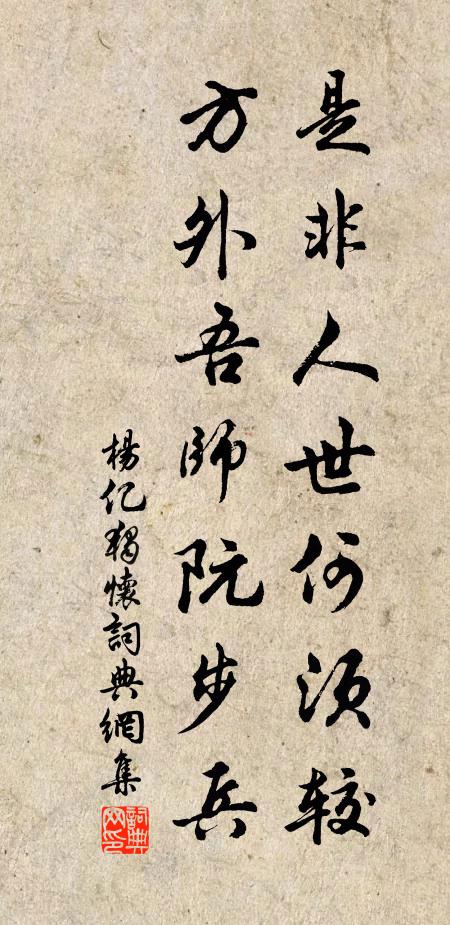 是非人世何須較
方外吾師阮步兵
楊億獨懷詞典網集
詞典網印